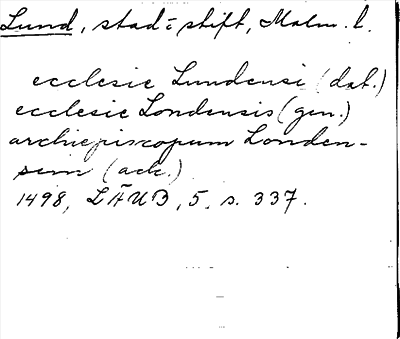 Lund, stad o. stift, Malm. l.
ecclesie Lundensi (dat.)
ecclesie Londensis (gen.)
archiepiscopum Londen-
sem (ack.)
1498, LÄUB, 5, s. 337.